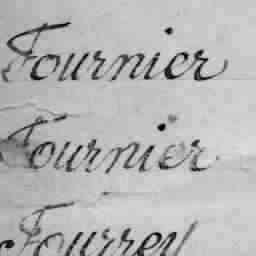 Fournier
Fournier
Fourrey